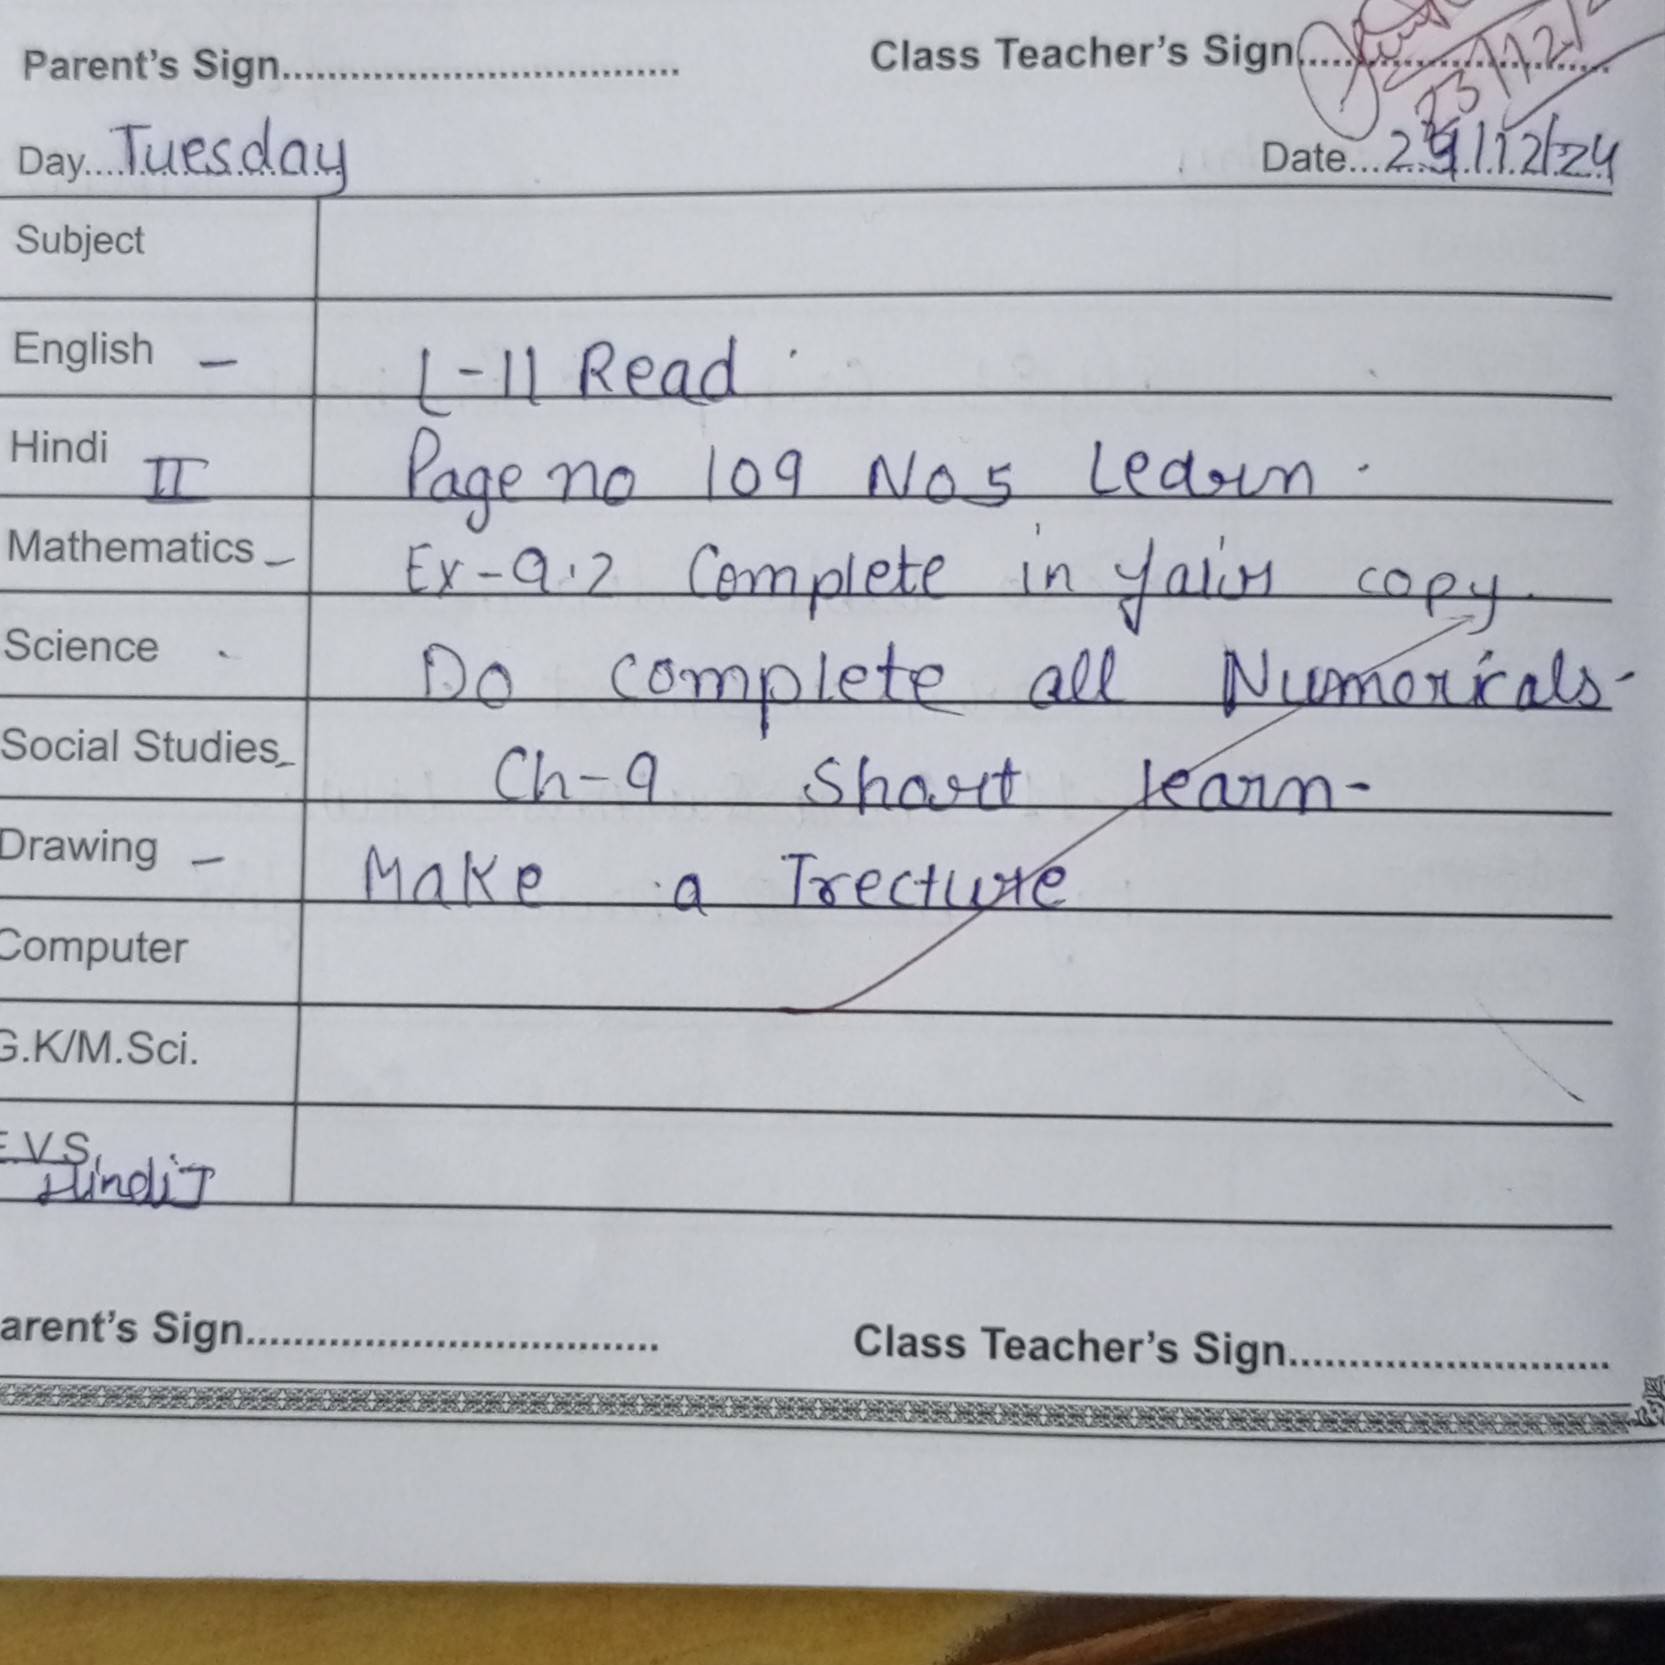 Parent's Sign.................................... Class Teacher's Sign............................
23/12/
Day....Tuesday Date...24/12/24
Subject
English - L-11 Read
Hindi II Page no 109 No 5 Learn.
Mathematics - Ex-9.2 Complete in fair copy.
Science Do complete all Numericals-
Social Studies - Ch-9 Short learn-
Drawing - Make a Trecture
Computer
G.K/M.Sci.
E.V.S.
Hindi I
arent's Sign.................................... Class Teacher's Sign............................